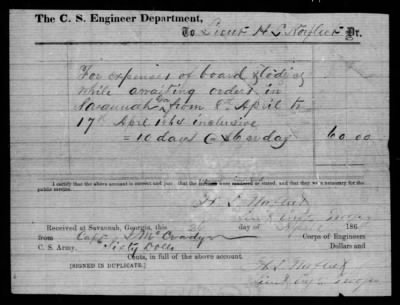 The C. S. Engineer Department,
To Lieut H. L. Dr.
For expenses of board & lodging
while awaiting orders in
Savannah Ga from 8th April to
17th April 1864 inclusive
= 10 days @ $6 er day 60 00
I certify that the above account is correct and just; that the services were rendered as stated, and that they were necessary for the
public service.
H. L.
Lieut Engr
Received at Savannah, Georgia, this 20 day of April 186
from Capt J McCrady Corps of Engineers
C. S. Army, Sixty Dolls Dollars and
Cents, in full of the above account.
[SIGNED IN DUPLICATE.] H. L.
Lieut